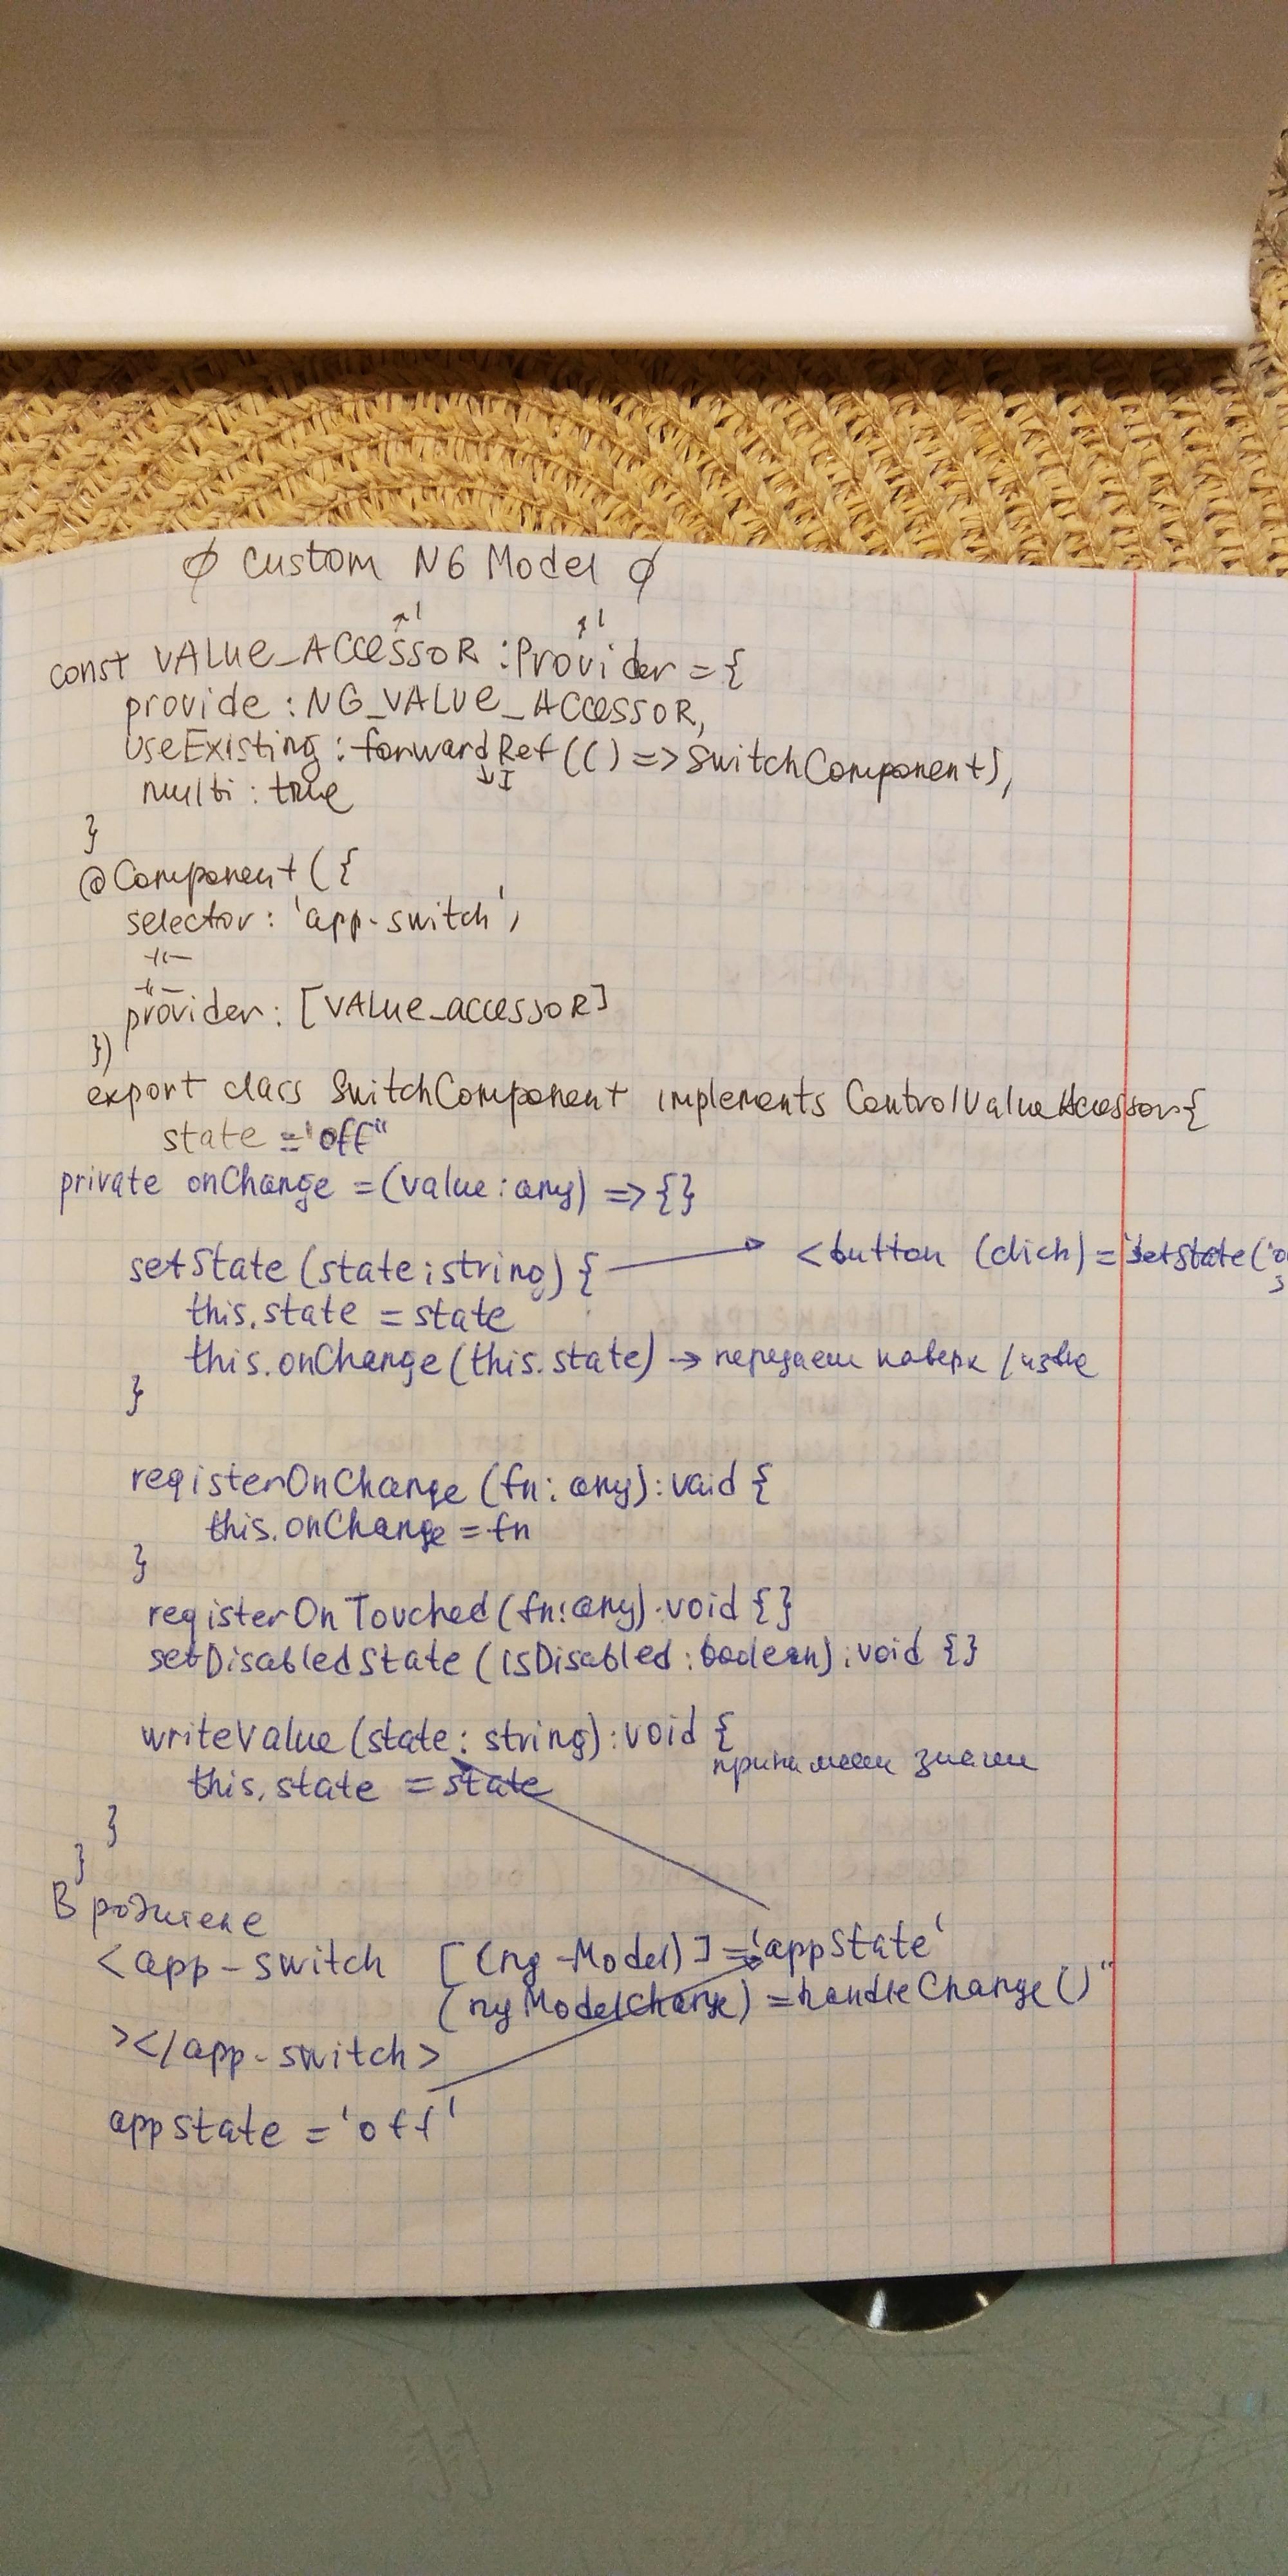 ∅ Custom NG Model ∅
const VALUE_ACCESSOR : Provider = {
provide : NG_VALUE_ACCESSOR,
useExisting : forwardRef(() => SwitchComponent),
multi : true
}
@Component ({
selector : 'app-switch',
-//-
-//-
provider : [VALUE_ACCESSOR]
})
export class SwitchComponent implements ControlValueAccessor {
state = 'off"
private onChange = (value : any) => {}
setState (state : string) { → <button (click) = 'setState('
this.state = state
this.onChange (this.state) → передаем наверх / извне
}
registerOnChange (fn : any) : void {
this.onChange = fn
}
registerOnTouched (fn : any) : void {}
setDisabledState (isDisabled : boolean) : void {}
writeValue (state : string) : void {
принимаем
this.state = state
}
}
В родителе
<app-switch [(ng-Model)] = 'appState'
(ngModelChange) = handleChange()"
></app-switch>
appState = 'off'